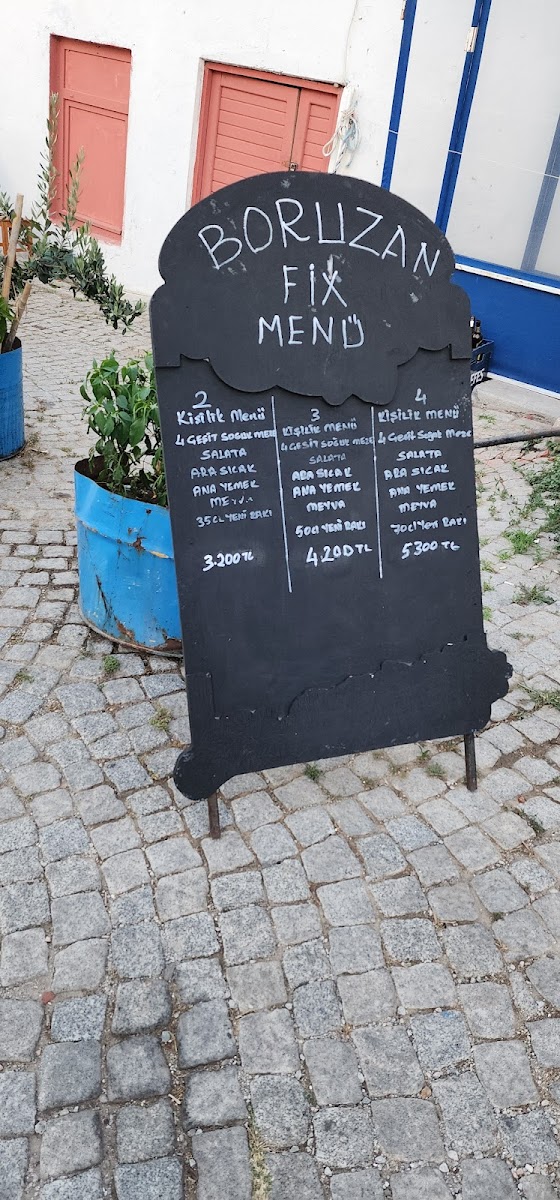 BORUZAN
FİX
MENÜ
2
Kişilik Menü
4 ÇEŞİT SOĞUK MEZE
SALATA
ARA SICAK
ANA YEMEK
MEYVA
35 CL YENİ RAKI
3.200 TL
3
KİŞİLİK MENÜ
4 ÇEŞİT SOĞUK MEZE
SALATA
ARA SICAK
ANA YEMEK
MEYVA
50 cl YENİ RAKI
4.200 TL
4
KİŞİLİK MENÜ
4 Çeşit Soğuk Meze
SALATA
ARA SICAK
ANA YEMEK
MEYVA
70 cl Yeni RAKI
5300 TL
EFES